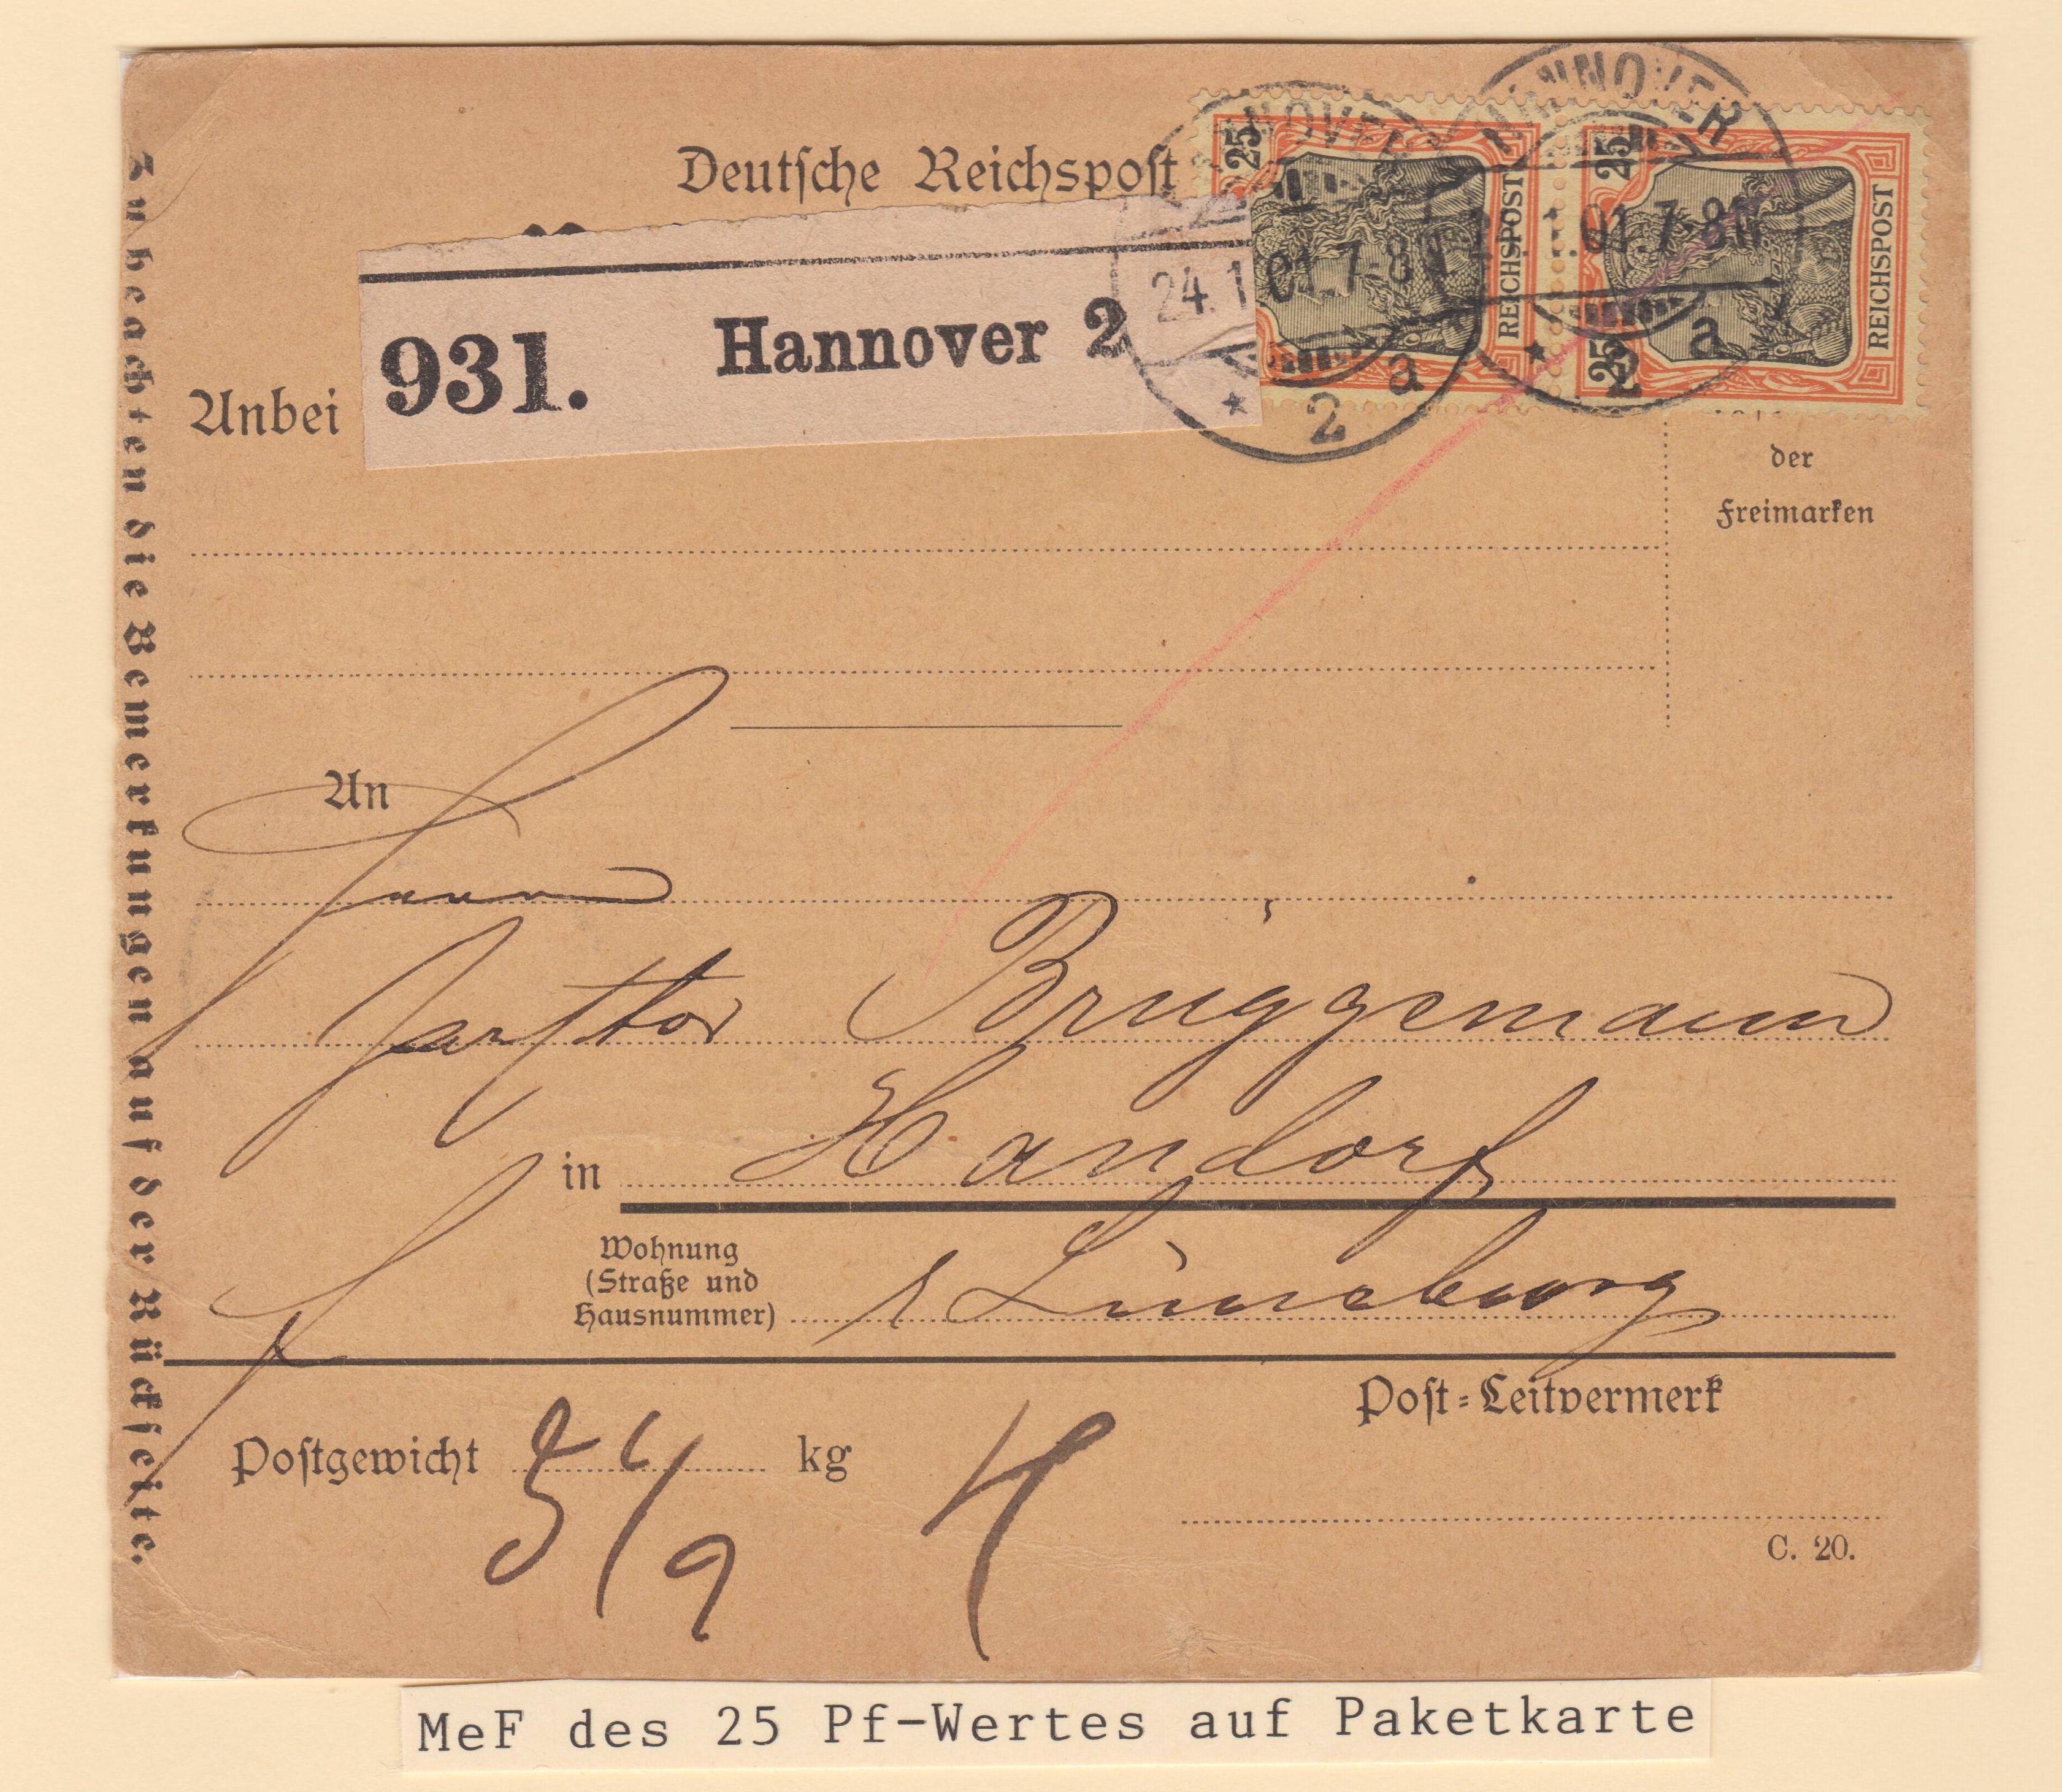 Deutsche Reichspost
HANNOVER
24.1.01.7-8N
2 a
HANNOVER
.01.7-8N
2 a
25
REICHSPOST
25
25
REICHSPOST
931. Hannover 2
Anbei
der
Freimarken
An
Herrn
Pastor Brüggemann
in Handorf
Wohnung
(Straße und
Hausnummer)
Lüneburg
Post-Leitvermerk
Postgewicht 5 kg
C. 20.
Zu beachten die Bemerkungen auf der Rückseite.
MeF des 25 Pf-Wertes auf Paketkarte